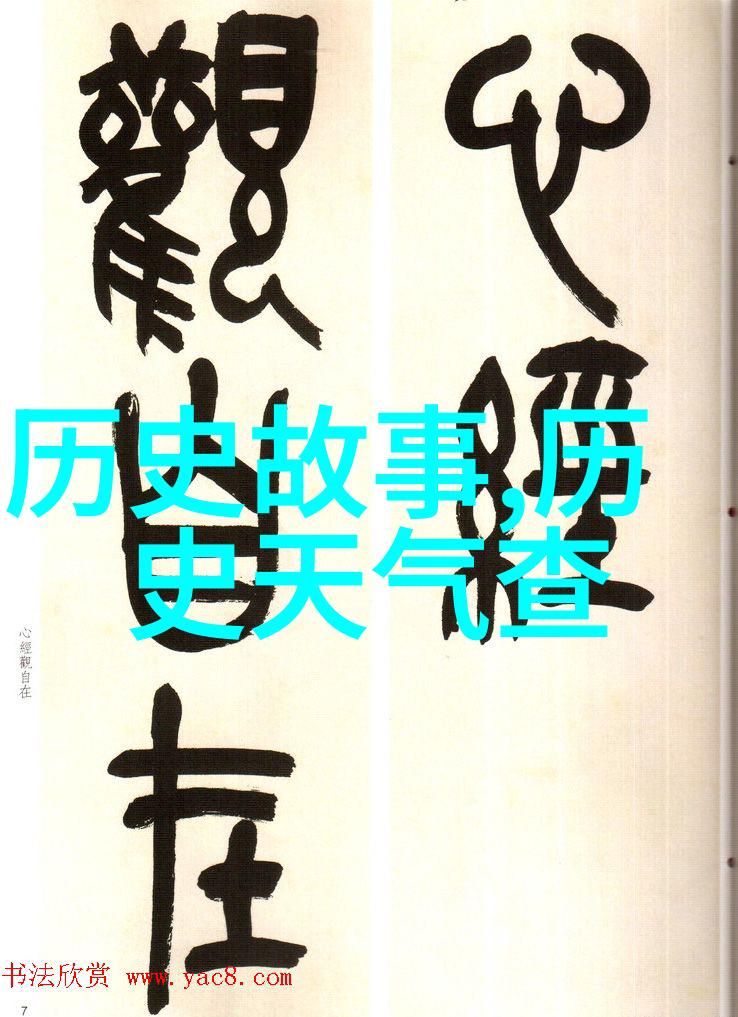 心經
觀自在
历史故事,历
史天气查
心經觀自在
书法欣赏 www.yac8.com
7